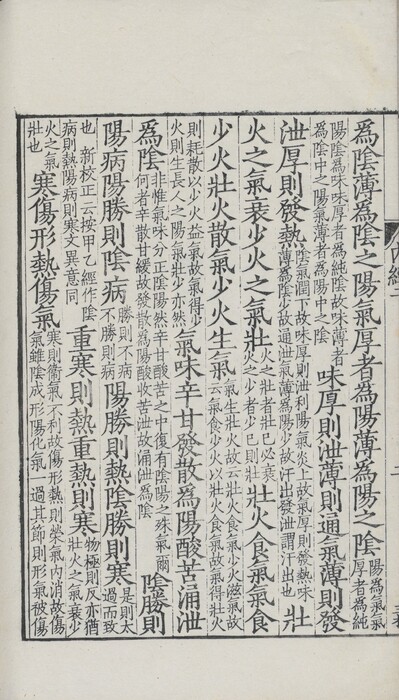 為陰薄為陰之陽氣厚者為陽薄為陽之陰陽為氣氣厚者為純
陽陰為味味厚者為純陰故味薄者為陰中之陽氣薄者為陽中之陰味厚則泄薄則通氣薄則發
泄厚則發熱陰氣潤下故味厚則泄利陽氣炎上故氣厚則發熱味薄為陰少故通泄氣薄為陽少故汗出發泄謂汗出也壯
火之氣衰少火之氣壯火之壯者壯已必衰火之少者少已則壯壯火食氣氣食
少火壯火散氣少火生氣氣生壯火故云壯火食氣少火滋氣故云氣食少火以壯火食氣故氣得壯火
則耗散以少火益氣故氣得少火則生長人之陽氣壯少亦然氣味辛甘發散為陽酸苦涌泄
為陰非惟氣味分正陰陽然辛甘酸苦之中復有陰陽之殊氣爾何者辛散甘緩故發散為陽酸收苦泄故涌泄為陰陰勝則
陽病陽勝則陰病勝則不病不勝則病陽勝則熱陰勝則寒是則太過而致
也 新校正云按甲乙經作陰病則熱陽病則寒文異意同重寒則熱重熱則寒物極則反亦猶壯火之氣衰少
火之氣壯也寒傷形熱傷氣寒則衛氣不利故傷形熱則榮氣内消故傷氣雖陰成形陽化氣一過其節則形氣被傷
内經二